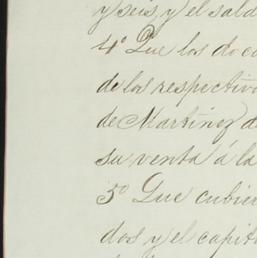 y seis, y el sald
4º Que los doc
de los respectiv
de Martinez d
su venta á la
5º Que cubier
dos y el capit